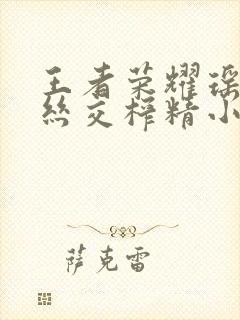 王者荣耀瑶
丝交榨精小
萨克雷